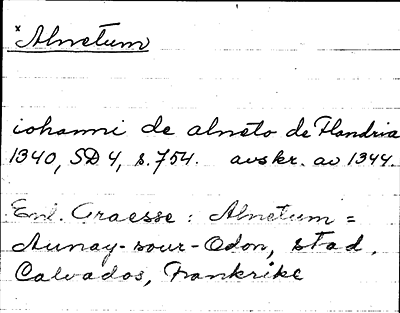 * Alnetum
iohanni de alneto de Flandria
1340, SD 4, s. 754. avskr. av 1344.
Enl. Graesse : Alnetum =
Aunay-sour-Odon, stad,
Calvados, Frankrike